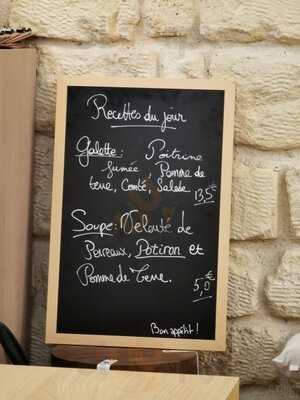 Recettes du jour
Galette: Poitrine
fumée Pomme de
terre, Comté, Salade
13,5€
Soupe: Velouté de
Poireaux, Potiron et
Pomme de Terre.
5,0€
Bon appétit!